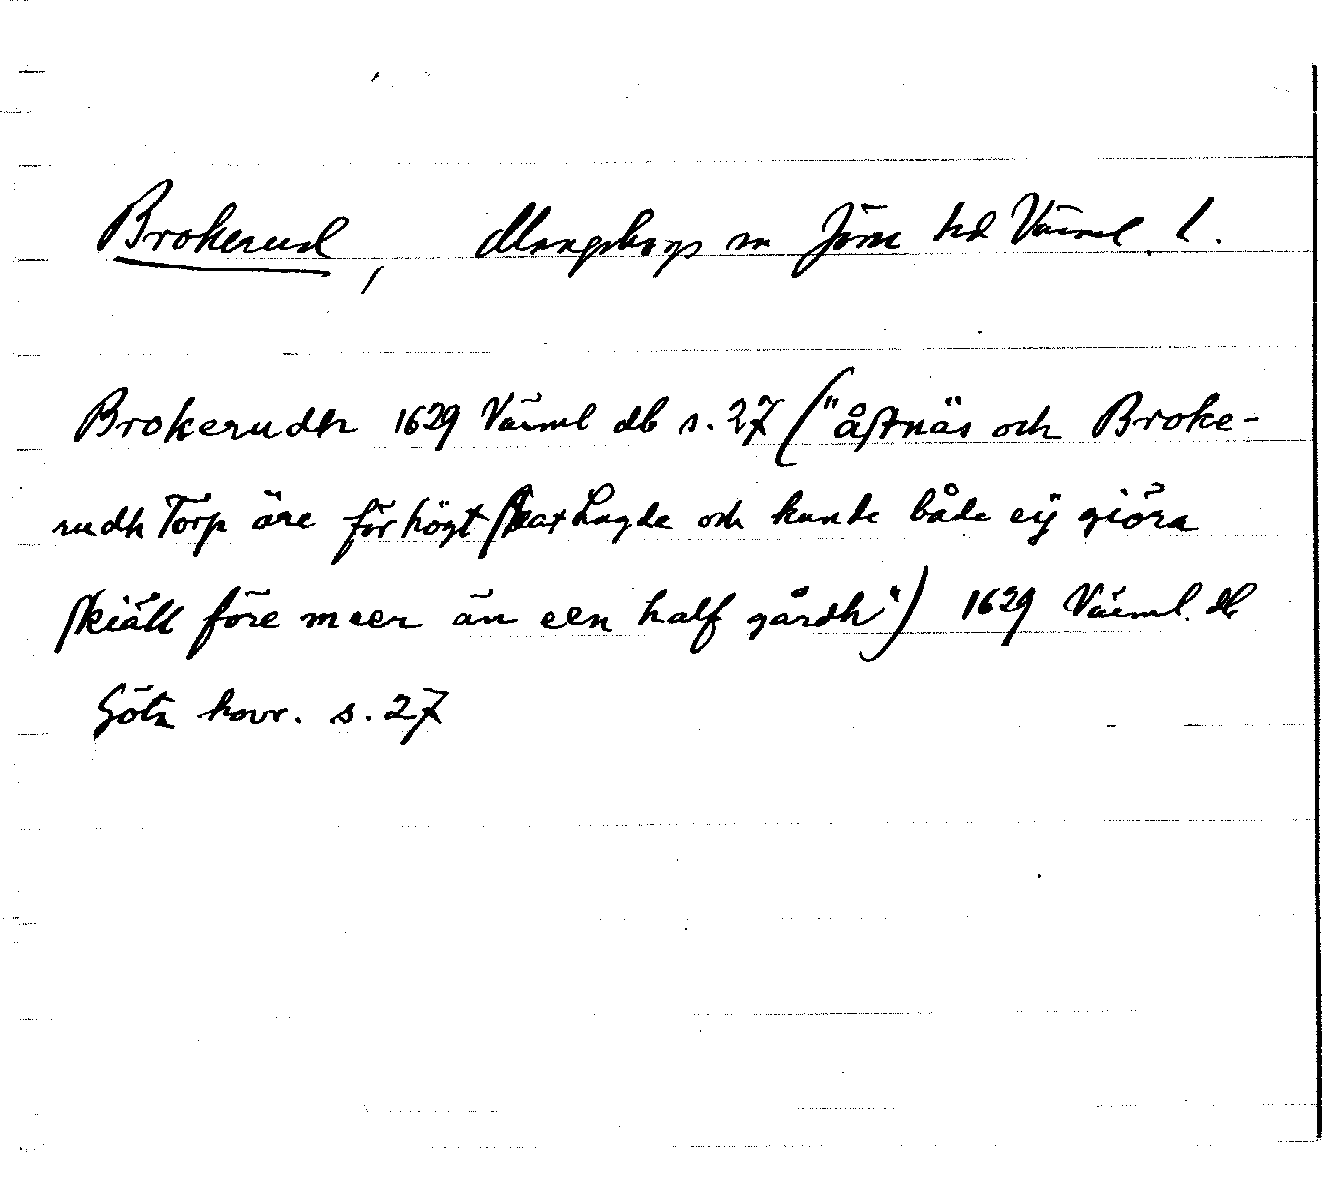 Brokerud, Mangskogs sn Jösse hd Värml. l.
Brokerudh 1629 Värml db s. 27 ("åstnäs och Broke-
rudh Torp äre för högt skat Lagde och kunde både eij giöra
skiäll före meer än een half gårdh") 1629 Värml. db
Göta hovr. s. 27